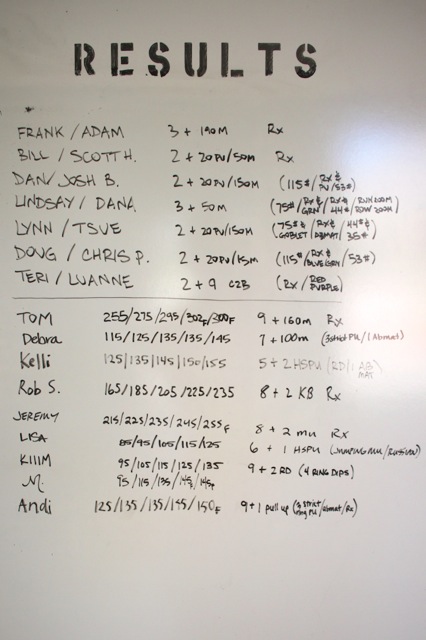 RESULTS
FRANK / ADAM 3 + 190M Rx
BILL / SCOTT H. 2 + 20PU/50M Rx
DAN / JOSH B. 2 + 20PU/150M (115#/Rx &/PU/53#)
LINDSAY / DANA 3 + 50M (75#/Rx & GRN/Rx & 44#/RUN 200M ROW 200M)
LYNN / TSUE 2 + 20PU/150M (75# & GOBLET/Rx & ABMAT/44# & 35#)
DOUG / CHRIS P. 2 + 20PU/15M (115#/Rx & BLUE/GRN/53#)
TERI / LUANNE 2 + 9 C2B (Rx/RED PURPLE)
TOM 255/275/295/302F/300F 9 + 160m Rx
Debra 115/125/135/135/145 7 + 100m (3 strict PU/1 Abmat)
Kelli 125/135/145/150/155 5 + 2 HSPU (RD/1 AB MAT
Rob S. 165/185/205/225/235 8 + 2 KB Rx
JEREMY 215/225/235/245/255F 8 + 2 mu Rx
LISA 85/95/105/115/125 6 + 1 HSPU (JUMPING MU/RUSSIAN)
KIIIM 95/105/115/125/135 9 + 2 RD (4 RING DIPS)
M. 95/115/135/145F/145F
Andi 125/135/135/145/150F 9 + 1 pull up (3 strict ring PU/abmat/Rx)